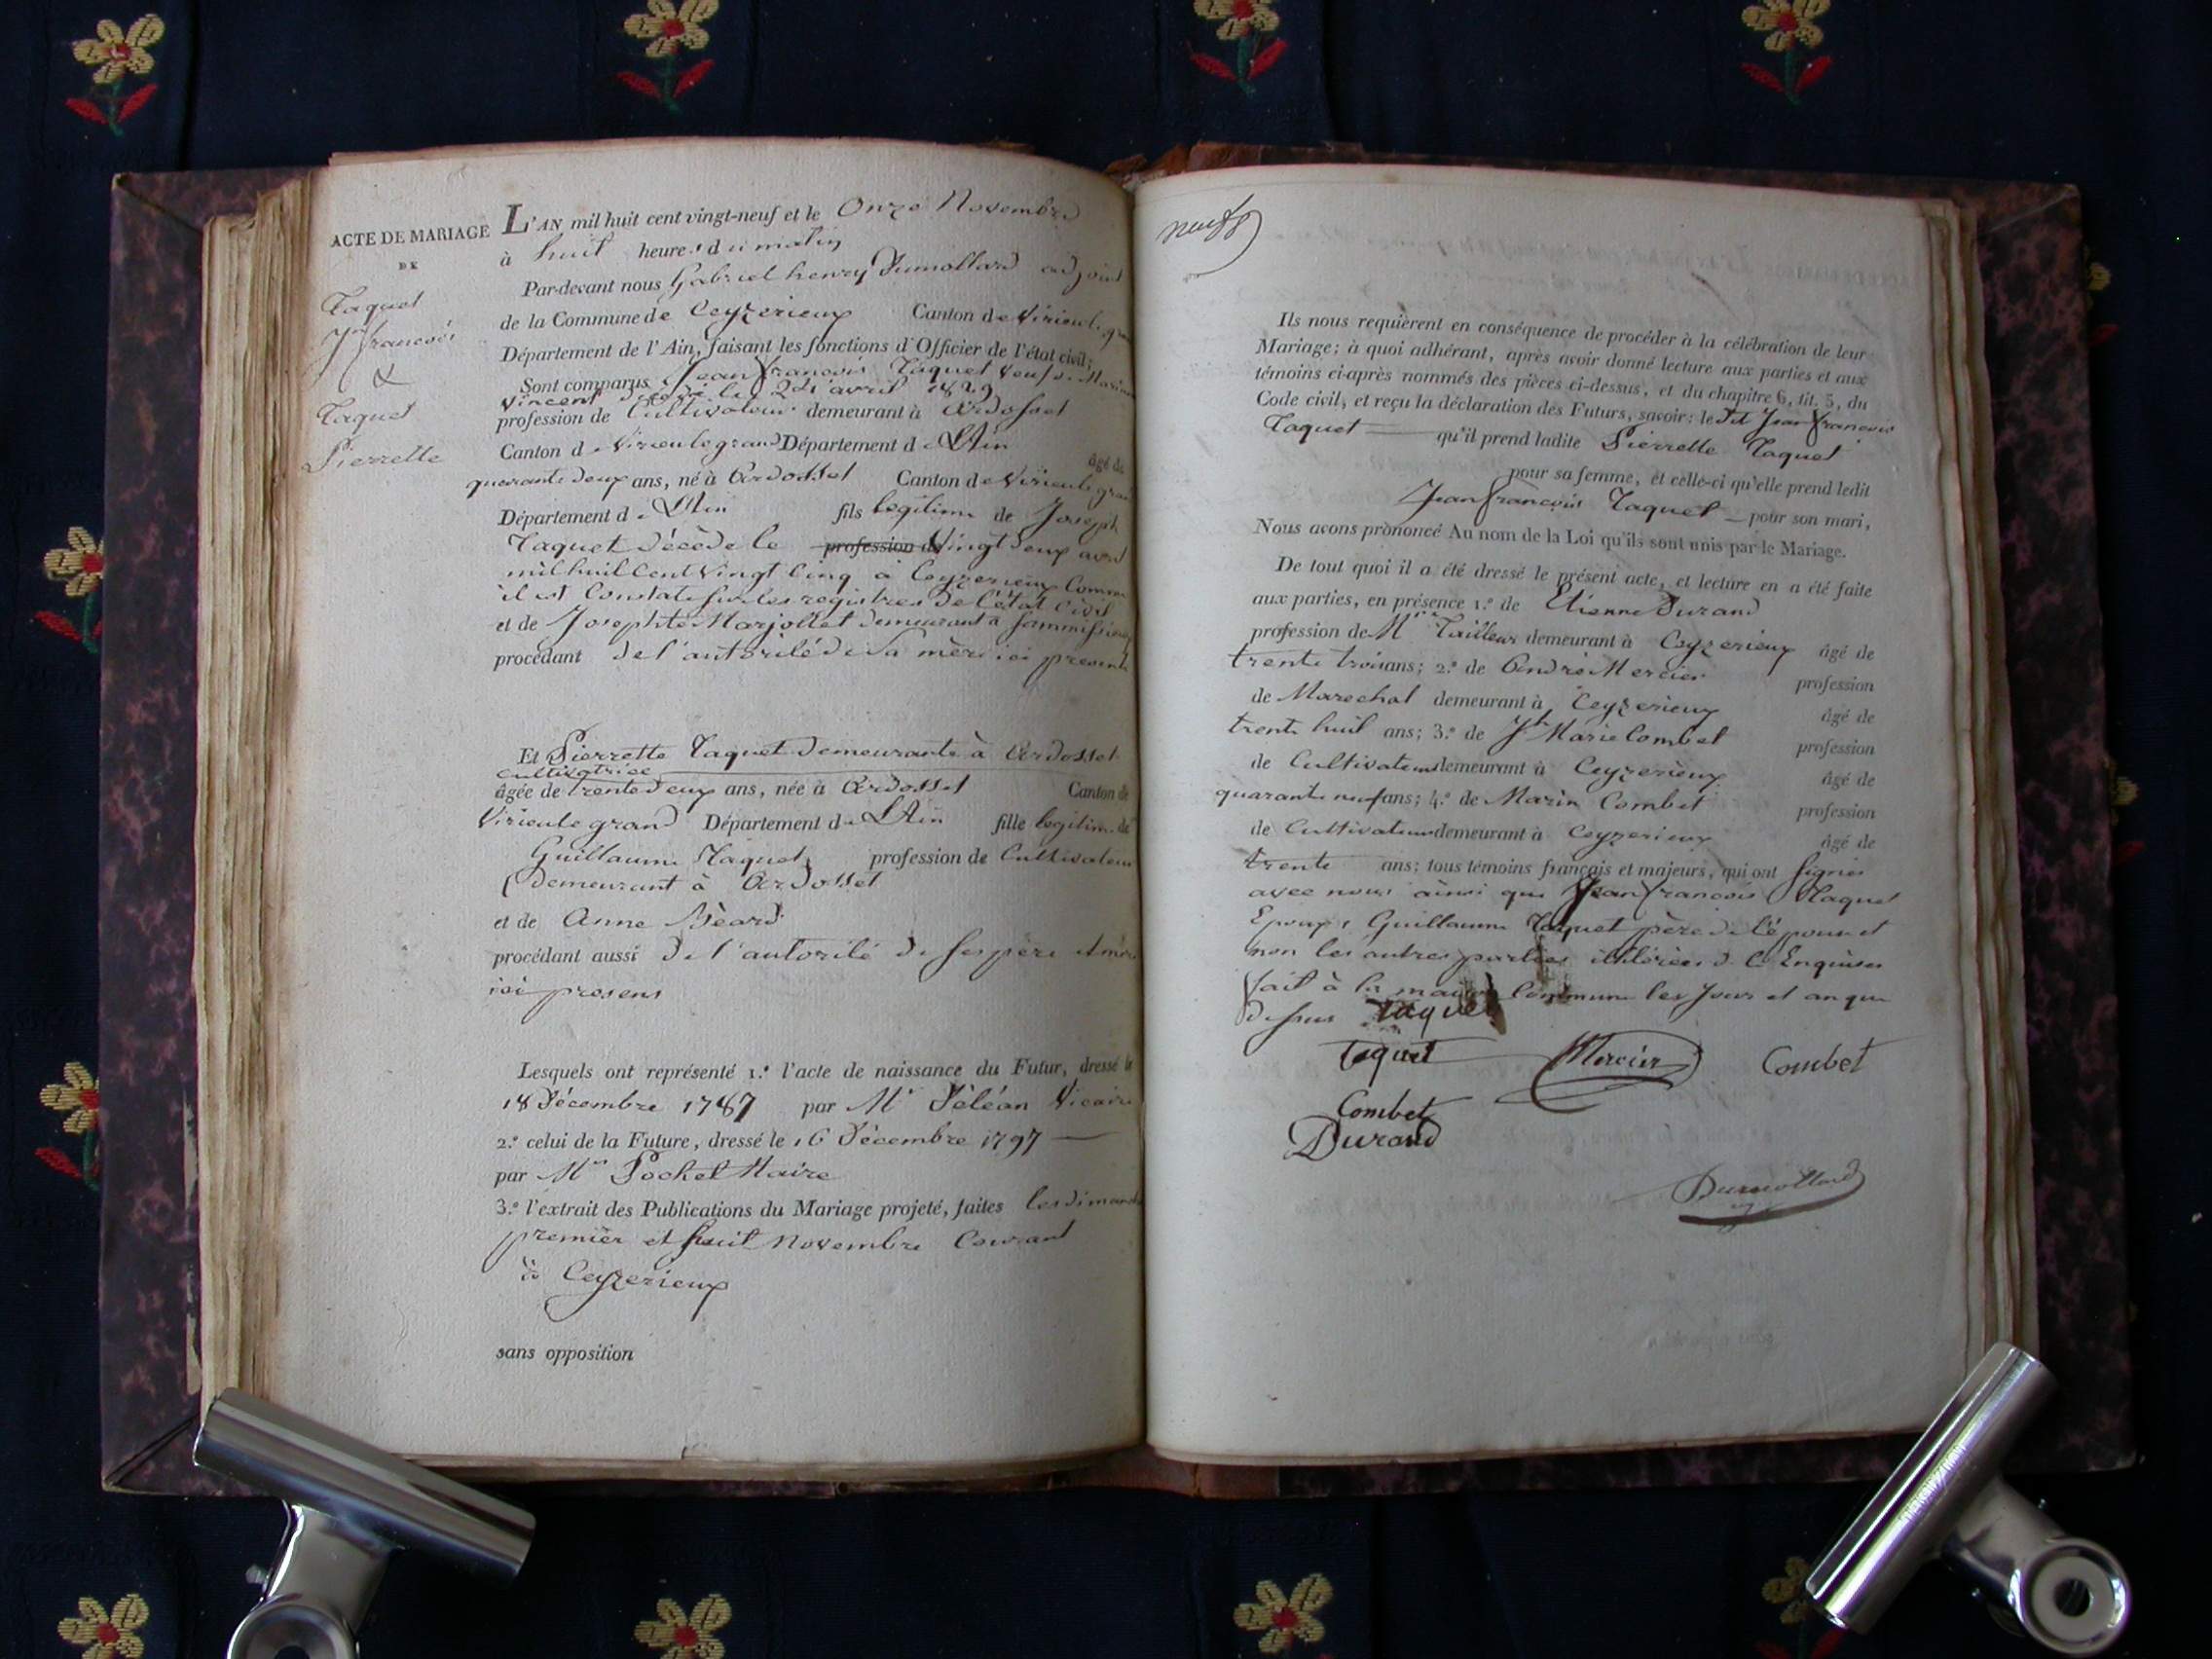 ACTE DE MARIAGE
DE
Taquet
Jn francois
&
Taquet
Pierrette
L'AN mil huit cent vingt-neuf et le Onze Novembre
à huit heures du matin
Par-devant nous Gabriel henry Dumollard adjoint
de la Commune de Ceyzerieux Canton de Virieu le gran
Département de l'Ain, faisant les fonctions d'Officier de l'état civil;
Sont comparus Jean francois Taquet veuf de
Vincent décédé le 2 avril 1829
profession de Cultivateur demeurant à Ardosset
Canton de Virieu le grand Département de L'Ain
âgé de
quarante deux ans, né à Ardosset Canton de Virieu le gran
Département de L'Ain fils legitime de Joseph
Taquet décédé le profession de Vingt deux avril
mil huit Cent Vingt Cinq à Ceyzerieux Comme
il est Constaté sur les registres de l'état Civil
et de Josephte Marjollet demeurant à
procédant de l'autorité de Sa mère ici presente
Et Pierrette Taquet demeurante à Ardosset
Cultivatrice
âgée de trente deux ans, née à Ardosset Canton de
Virieu le grand Département de L'Ain fille legitime de
Guillaume Taquet profession de Cultivateur
demeurant à Ardosset
et de Anne Béard
procédant aussi de l'autorité de ses père et mère
ici presens
Lesquels ont représenté 1.° l'acte de naissance du Futur, dressé le
18 Décembre 1787 par Mr Déléan Vicaire
2.° celui de la Future, dressé le 16 Décembre 1797
par Mr Pochet Maire
3.° l'extrait des Publications du Mariage projeté, faites les dimanche
premier et huit Novembre Courant
à Ceyzerieux
sans opposition
neuf
Ils nous requièrent en conséquence de procéder à la célébration de leur
Mariage; à quoi adhérant, après avoir donné lecture aux parties et aux
témoins ci-après nommés des pièces ci-dessus, et du chapitre 6, tit. 5, du
Code civil, et reçu la déclaration des Futurs, savoir: le dit Jean francois
Taquet qu'il prend ladite Pierrette Taquet
pour sa femme, et celle-ci qu'elle prend ledit
Jean francois Taquet pour son mari,
Nous avons prononcé Au nom de la Loi qu'ils sont unis par le Mariage.
De tout quoi il a été dressé le présent acte, et lecture en a été faite
aux parties, en présence 1.° de Etienne Durand
profession de Mr Tailleur demeurant à Ceyzerieux âgé de
trente trois ans; 2.° de André Mercier profession
de Marechal demeurant à Ceyzerieux âgé de
trente huit ans; 3.° de Jh Marie Combet profession
de Cultivateur demeurant à Ceyzerieux âgé de
quarante neuf ans; 4.° de Marin Combet profession
de Cultivateur demeurant à Ceyzerieux âgé de
trente ans; tous témoins français et majeurs, qui ont signés
avec nous ainsi que Jean francois Taquet
Epoux, Guillaume Taquet père de l'épouse et
non les autres parties illiterées de Ce Enquises
fait à la maison Commune les Jour et an que
dessus Taquet
Taquet Mercier Combet
Combet
Durand
Dumollard